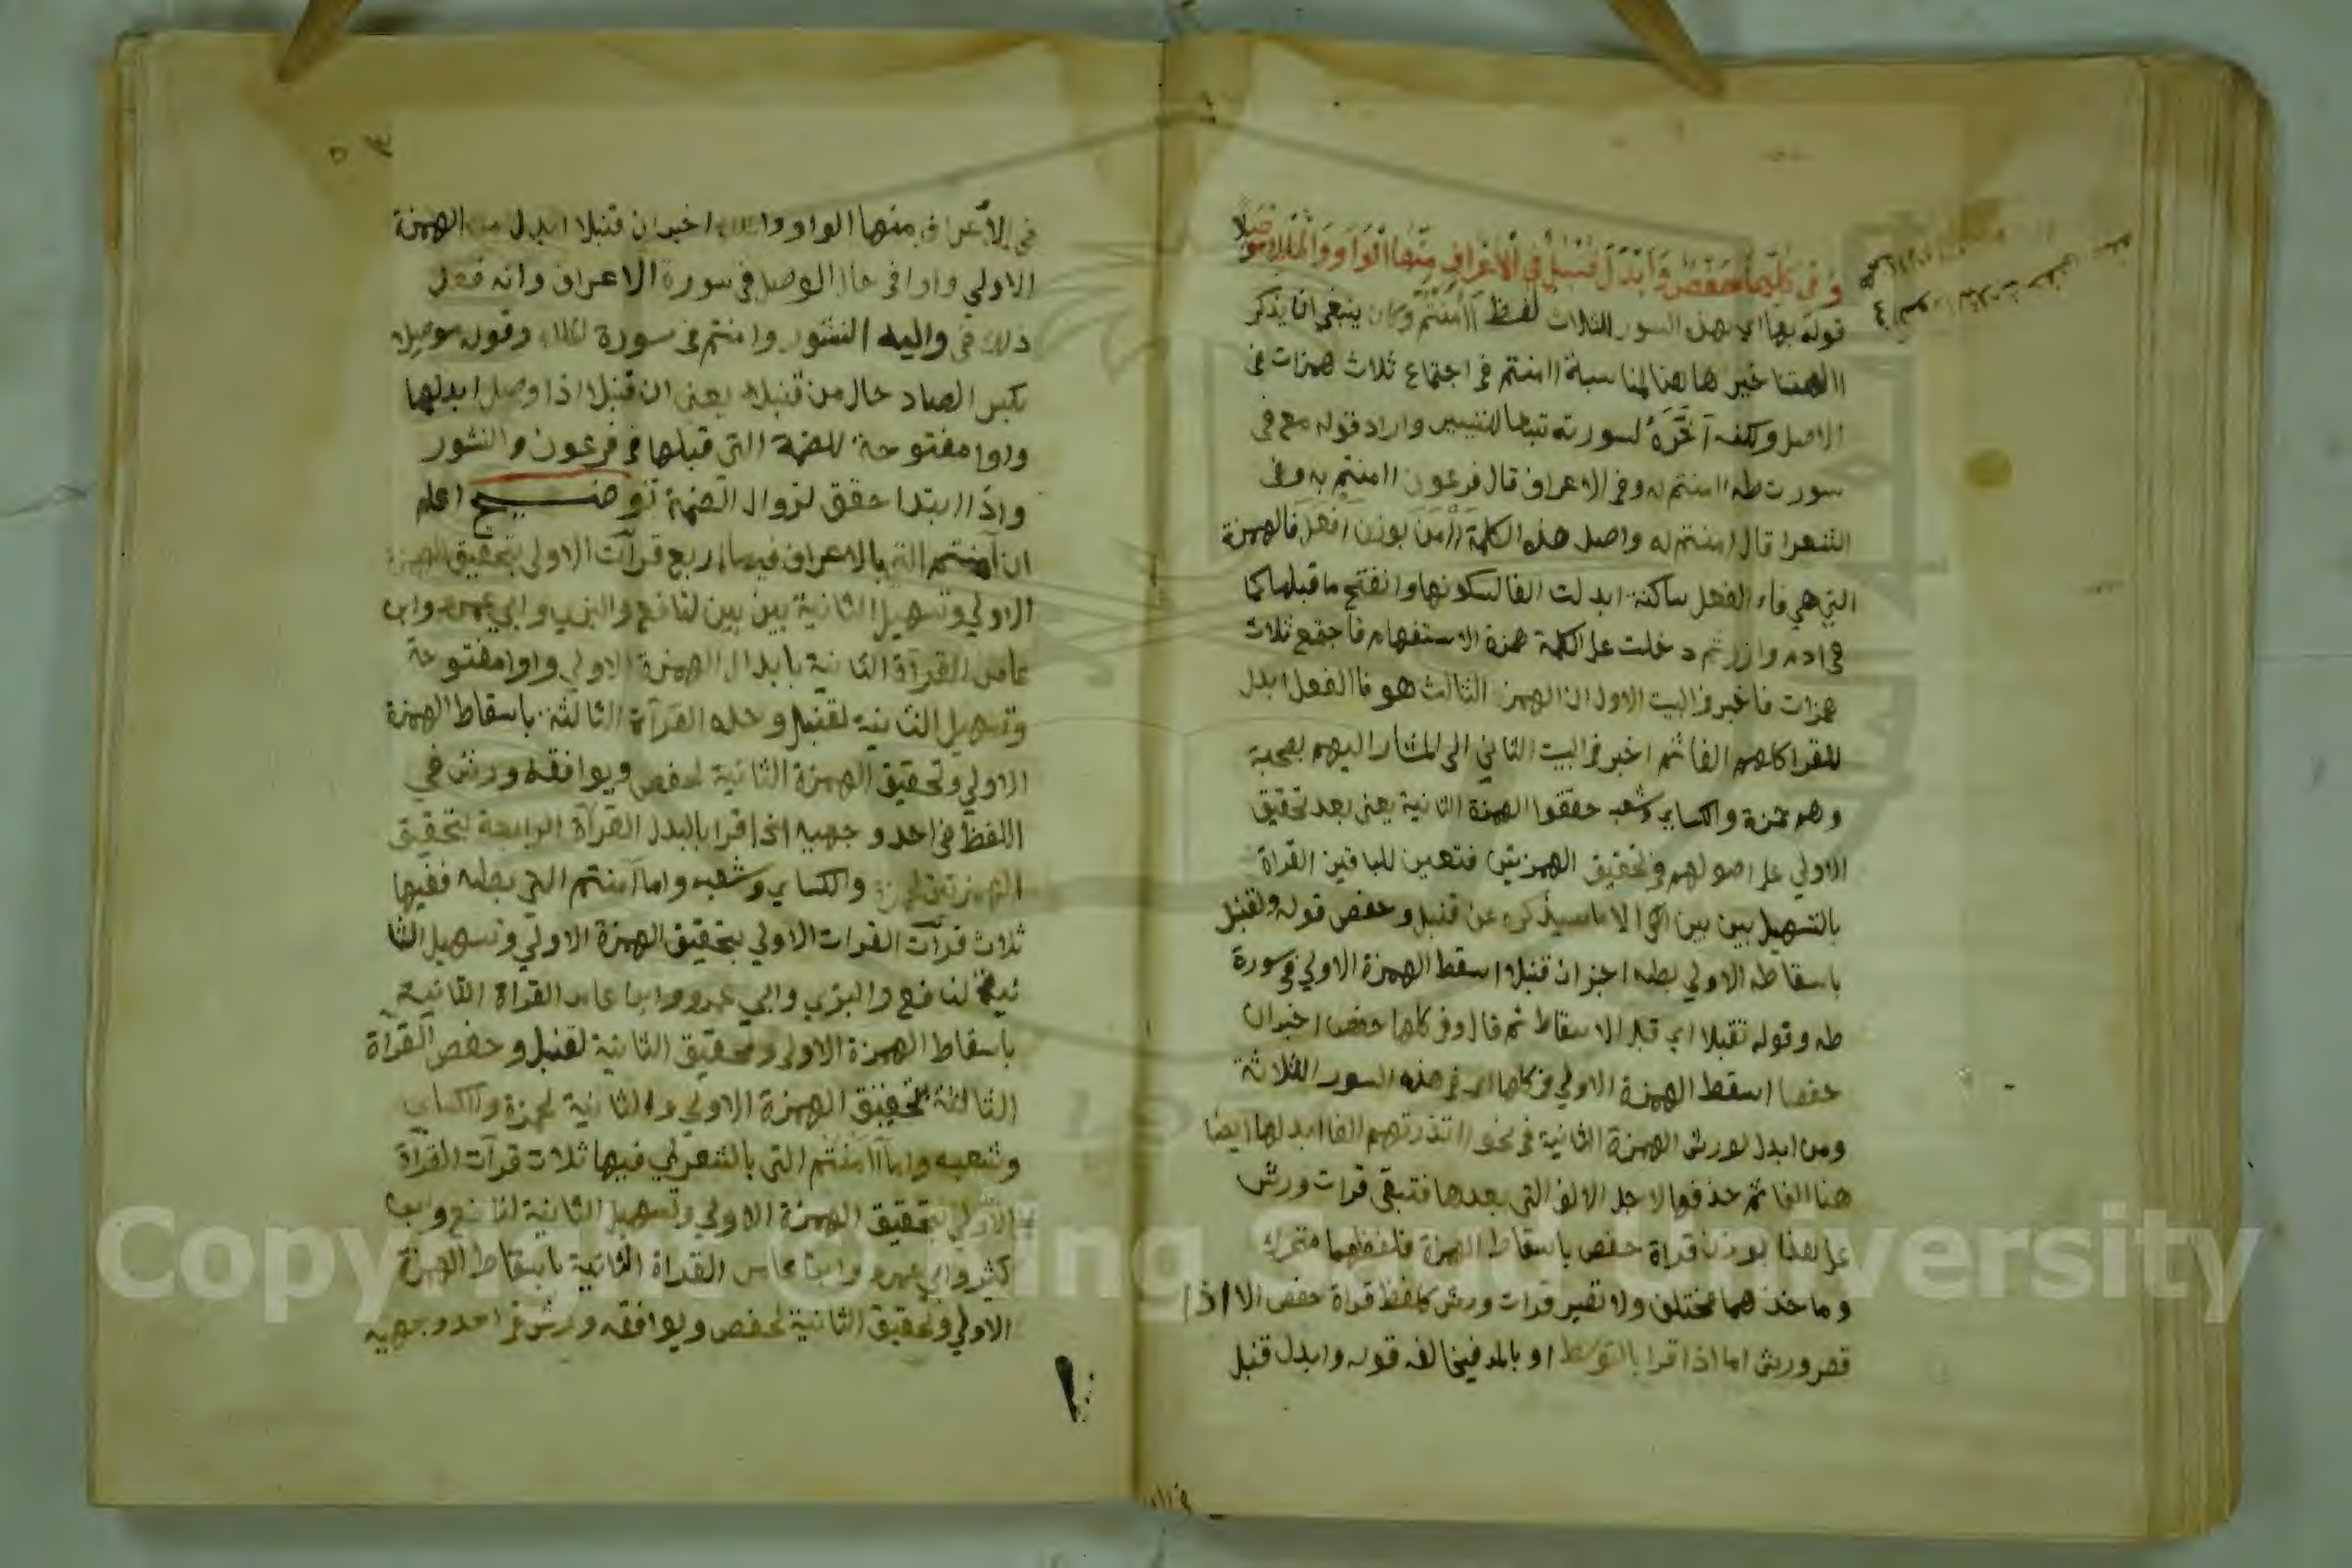 وفي كلها حفص وأبدل قنبل في الأعراف منها الواو والملك موصلا
قوله بها اي بهذه السور الثلاث لفظ ءاامنتم وكان ينبغي ان يذكر
االهتنا خير ها هنا لمناسبة اامنتم في اجتماع ثلاث همزات في
الاصل ولكنه آخره لسورته تبعا للتيسير واراد قوله مع في
سورت طه اامنتم له وفي الاعراف قال فرعون اامنتم به وفي
الشعرا قال امنتم له واصل هذه الكلمة أأمن بوزن افعل فالهمزة
التي هي فاء الفعل ساكنة ابدلت الفا لسكونها وانفتح ما قبلها كما
في ادم وازر ثم دخلت على الكلمة همزة الاستفهام فاجتمع ثلاث
همزات فاخبر في البيت الاول ان الهمز الثالث هو فا الفعل ابدل
للقرا كلهم الفا ثم اخبر في البيت الثاني الى المشار اليهم بصحبة
وهم حمزة والكساي وشعبه حققوا الهمزة الثانية يعني بعد تحقيق
الاولي على اصولهم في تحقيق الهمزتين فتعين للباقين القراة
بالتسهيل بين بين الا ما سيذكره عن قنبل وحفص قوله ولقنبل
باسقاطه الاولي بطه اخبر ان قنبلا اسقط الهمزة الاولي في سورة
طه وقوله تقبلا اي قبل الاسقاط ثم قال وفي كلها حفص اخبر ان
حفصا اسقط الهمزة الاولي في كلها اي في هذه السور الثلاثة
ومن ابدل لورش الهمزة الثانية في نحو اانذرتهم الفا ابدلها ايضا
هنا الفا ثم حذفها لاجل الالف التي بعدها فتبقى قرات ورش
على هذا بوزن قراة حفص باسقاط الهمزة فلفظهما متحد
وماخذهما مختلف ولا تصير قرات ورش كلفظ قراة حفص الا اذا
قصر ورش اما اذا قرا بالتوسط او بالمد فيخالفه قوله وابدل قنبل
٥٣
في الأعراف منها الواو اخبر ان قنبلا ابدل من الهمزة
الاولي واوا في حال الوصل في سورة الاعراف وانه فعل
ذلك في واليه النشور وامنتم في سورة الملك وقوله موصلا
بكسر الصاد حال من قنبلا يعني ان قنبلا اذا وصل ابدلها
واوا مفتوحة للضمة التي قبلها في فرعون والنشور
واذا ابتدا حقق لزوال الضمة توضيح اعلم
ان آمنتم التي بالاعراف فيها اربع قرآت الاولى بتحقيق الهمزة
الاولي وتسهيل الثانية بين بين لنافع والبزي وابي عمرو وابن
عامر القرآة الثانية بابدال الهمزة الاولي واوا مفتوحة
وتسهيل الثانية لقنبل وحده القرآة الثالثة باسقاط الهمزة
الاولي وتحقيق الهمزة الثانية لحفص ويوافقه ورش في
اللفظ في احد وجهيه اذا قرا بالبدل القرآة الرابعة لتحقيق
الهمزتين لحمزة والكساي وشعبه واما آمنتم التي بطه ففيها
ثلاث قرآت القرات الاولي بتحقيق الهمزة الاولي وتسهيل الثا
نية لنافع والبزي وابي عمرو وابن عامر القراة الثانية
باسقاط الهمزة الاولى وتحقيق الثانية لقنبل وحفص القرآة
الثالثة تحقيق الهمزة الاولي والثانية لحمزة والكساي
وشعبه واما أآمنتم التي بالشعرا ففيها ثلاث قرآت القرآة
الاولي بتحقيق الهمزة الاولي وتسهيل الثانية لنافع وابن
كثير وابي عمرو وابن عامر القراة الثانية باسقاط الهمزة
الاولي وتحقيق الثانية لحفص ويوافقه ورش في احد وجهيه
Copyright © King Saud University